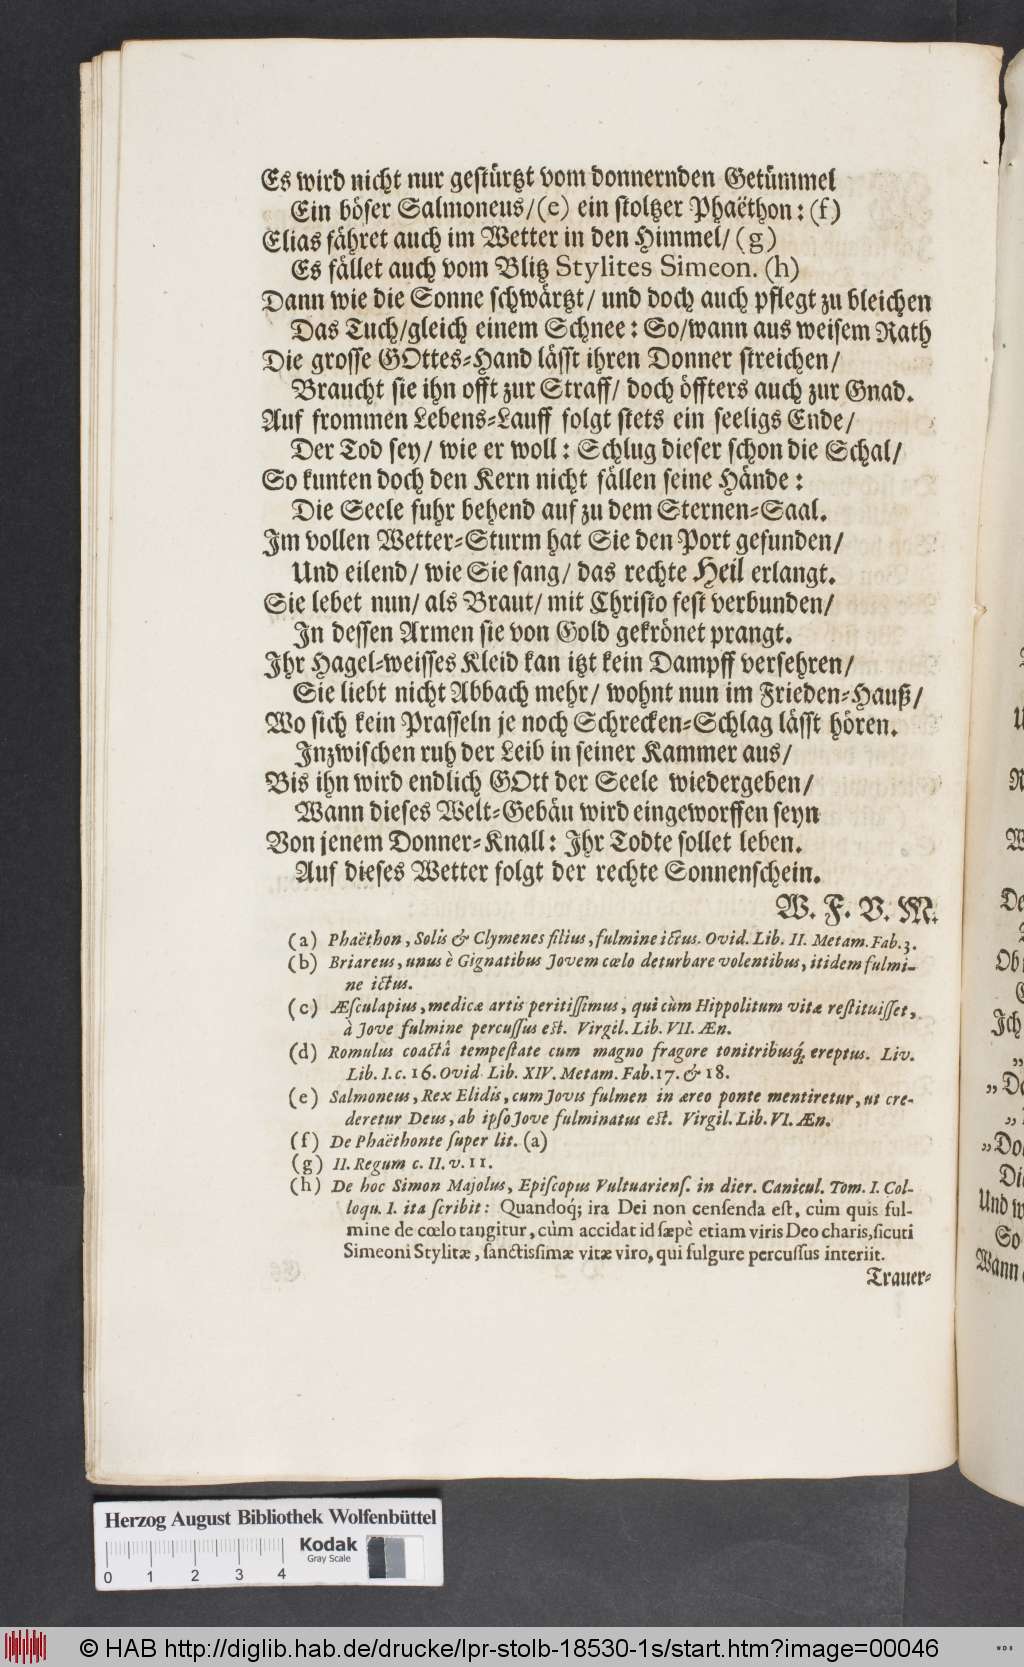 Es wird nicht nur gestürtzt vom donnernden Getümmel
Ein böser Salmoneus/(e) ein stoltzer Phaëthon: (f)
Elias fähret auch im Wetter in den Himmel/ (g)
Es fället auch vom Blitz Stylites Simeon. (h)
Dann wie die Sonne schwärtzt/ und doch auch pflegt zu bleichen
Das Tuch/gleich einem Schnee: So/wann aus weisem Rath
Die grosse GOttes-Hand lässt ihren Donner streichen/
Braucht sie ihn offt zur Straff/ doch öffters auch zur Gnad.
Auf frommen Lebens-Lauff folgt stets ein seeligs Ende/
Der Tod sey/ wie er woll: Schlug dieser schon die Schal/
So kunten doch den Kern nicht fällen seine Hände:
Die Seele fuhr behend auf zu dem Sternen-Saal.
Im vollen Wetter-Sturm hat Sie den Port gefunden/
Und eilend/ wie Sie sang/ das rechte Heil erlangt.
Sie lebet nun/ als Braut/ mit Christo fest verbunden/
In dessen Armen sie von Gold gekrönet prangt.
Ihr Hagel-weisses Kleid kan itzt kein Dampff versehren/
Sie liebt nicht Abbach mehr/ wohnt nun im Frieden-Hauß/
Wo sich kein Prasseln je noch Schrecken-Schlag lässt hören.
Inzwischen ruh der Leib in seiner Kammer aus/
Bis ihn wird endlich GOtt der Seele wiedergeben/
Wann dieses Welt-Gebäu wird eingeworffen seyn
Von jenem Donner-Knall: Ihr Todte sollet leben.
Auf dieses Wetter folgt der rechte Sonnenschein.
W. F. V. M.
(a) Phaëthon, Solis & Clymenes filius, fulmine ictus. Ovid. Lib. II. Metam. Fab. 3.
(b) Briareus, unus è Gignatibus Jovem cœlo deturbare volentibus, itidem fulmi-
ne ictus.
(c) Æsculapius, medicæ artis peritissimus, qui cùm Hippolitum vitæ restituisset,
à Jove fulmine percussus est. Virgil. Lib. VII. Æn.
(d) Romulus coactâ tempestate cum magno fragore tonitribusq́; ereptus. Liv.
Lib. I. c. 16. Ovid. Lib. XIV. Metam. Fab. 17. & 18.
(e) Salmoneus, Rex Elidis, cum Jovis fulmen in æreo ponte mentiretur, ut cre-
deretur Deus, ab ipso Jove fulminatus est. Virgil. Lib. VI. Æn.
(f) De Phaëthonte super lit. (a)
(g) II. Regum c. II. v. 11.
(h) De hoc Simon Majolus, Episcopus Vultuariens. in dier. Canicul. Tom. I. Col-
loqu. I. ita scribit: Quandoq́; ira Dei non censenda est, cùm quis ful-
mine de cœlo tangitur, cùm accidat id sæpè etiam viris Deo charis, sicuti
Simeoni Stylitæ, sanctissimæ vitæ viro, qui fulgure percussus interiit.
Trauer-
Herzog August Bibliothek Wolfenbüttel
Kodak
Gray Scale
0 1 2 3 4
© HAB http://diglib.hab.de/drucke/lpr-stolb-18530-1s/start.htm?image=00046